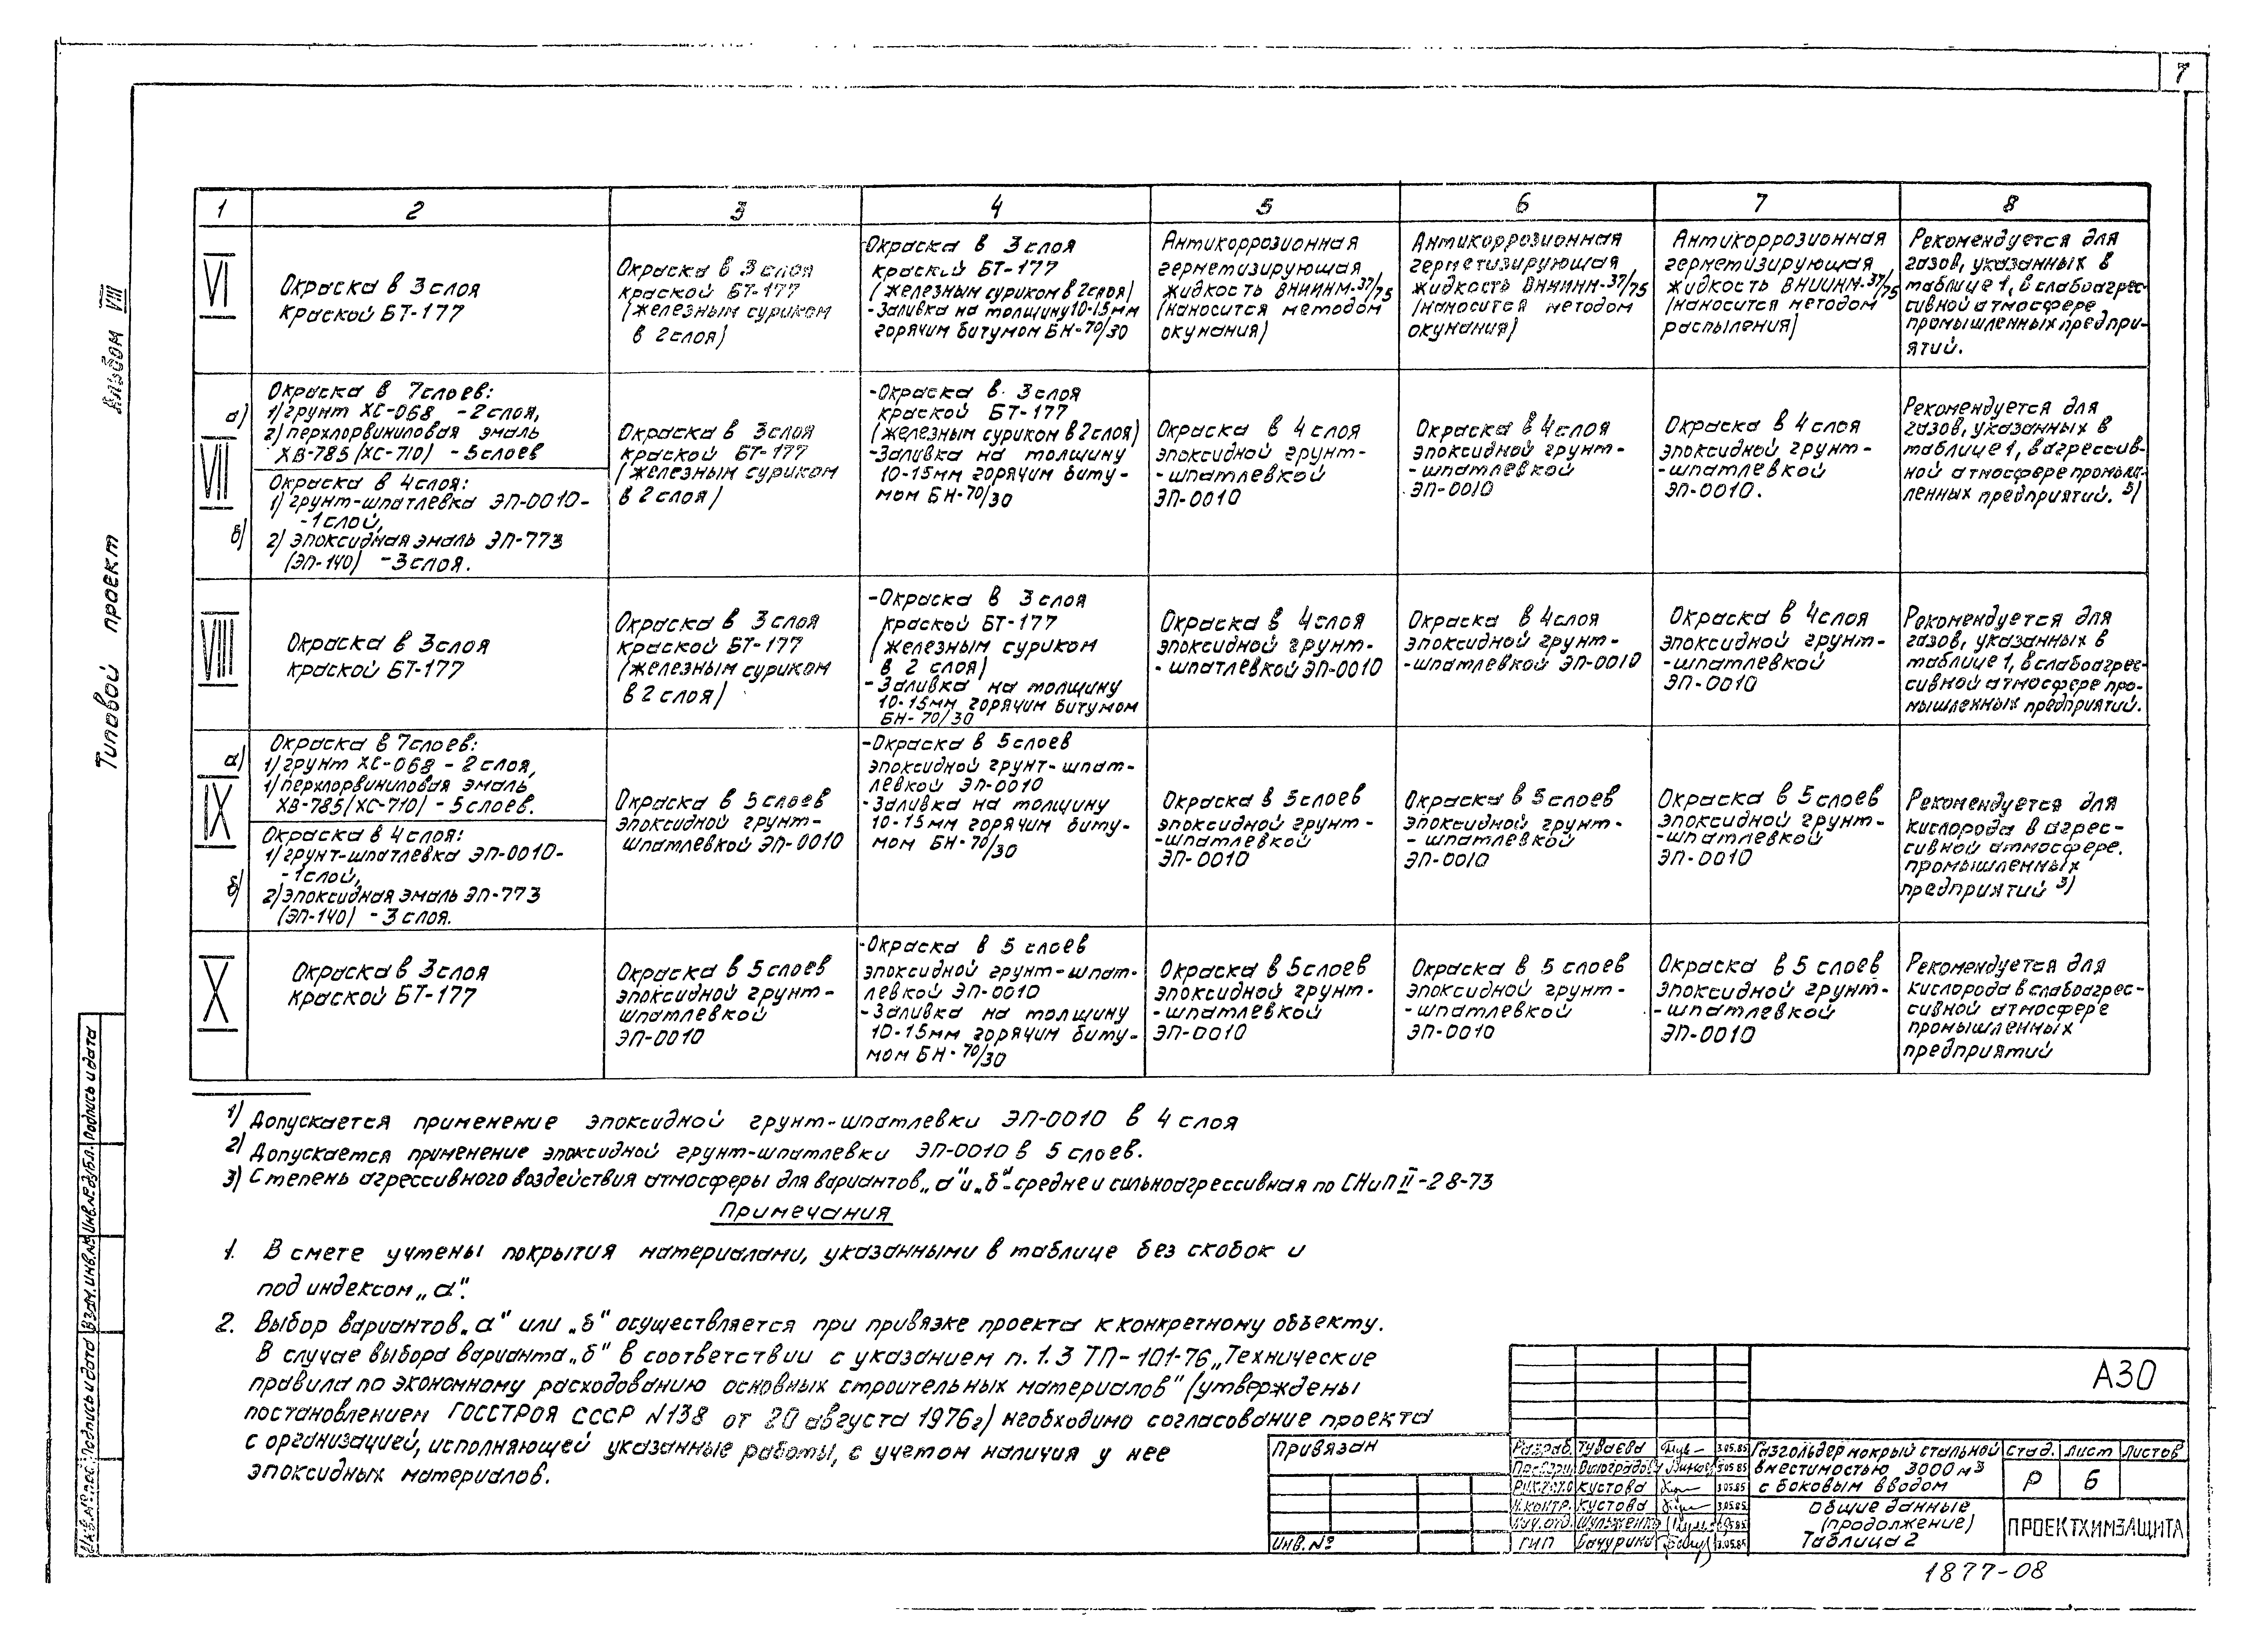 7
Типовой проект Альбом VIII
1 2 3 4 5 6 7 8
VI
Окраска в 3 слоя
краской БТ-177
Окраска в 3 слоя
краской БТ-177
(железным суриком
в 2 слоя)
-Окраска в 3 слоя
краской БТ-177
(железным суриком в 2 слоя)
-Заливка на толщину 10-15мм
горячим битумом БН-70/30
Антикоррозионная
герметизирующая
жидкость ВНИИНМ-37/75
(наносится методом
окунания)
Антикоррозионная
герметизирующая
жидкость ВНИИНМ-37/75
(наносится методом
окунания)
Антикоррозионная
герметизирующая
жидкость ВНИИНМ-37/75
(наносится методом
распыления)
Рекомендуется для
газов, указанных в
таблице 1, в слабоагрес-
сивной атмосфере
промышленных предпри-
ятий.
VII
а)
Окраска в 7 слоев:
1) грунт ХС-068 - 2 слоя,
2) перхлорвиниловая эмаль
ХВ-785 (ХС-710) - 5 слоев
б)
Окраска в 4 слоя:
1) грунт-шпатлевка ЭП-0010-
-1 слой,
2) эпоксидная эмаль ЭП-773
(ЭП-140) - 3 слоя.
Окраска в 3 слоя
краской БТ-177
(железным суриком
в 2 слоя)
-Окраска в 3 слоя
краской БТ-177
(железным суриком в 2 слоя)
-Заливка на толщину
10-15мм горячим биту-
мом БН-70/30
Окраска в 4 слоя
эпоксидной грунт-
-шпатлевкой
ЭП-0010
Окраска в 4 слоя
эпоксидной грунт-
-шпатлевкой
ЭП-0010
Окраска в 4 слоя
эпоксидной грунт-
-шпатлевкой
ЭП-0010.
Рекомендуется для
газов, указанных в
таблице 1, в агрессив-
ной атмосфере промыш-
ленных предприятий. 3)
VIII
Окраска в 3 слоя
краской БТ-177
Окраска в 3 слоя
краской БТ-177
(железным суриком
в 2 слоя)
-Окраска в 3 слоя
краской БТ-177
(железным суриком
в 2 слоя)
-Заливка на толщину
10-15мм горячим битумом
БН-70/30
Окраска в 4 слоя
эпоксидной грунт-
-шпатлевкой ЭП-0010
Окраска в 4 слоя
эпоксидной грунт-
-шпатлевкой ЭП-0010
Окраска в 4 слоя
эпоксидной грунт-
-шпатлевкой
ЭП-0010
Рекомендуется для
газов, указанных в
таблице 1, в слабоагрес-
сивной атмосфере про-
мышленных предприятий.
IX
а)
Окраска в 7 слоев:
1) грунт ХС-068 - 2 слоя,
1) перхлорвиниловая эмаль
ХВ-785 (ХС-710) - 5 слоев.
б)
Окраска в 4 слоя:
1) грунт-шпатлевка ЭП-0010-
-1 слой,
2) эпоксидная эмаль ЭП-773
(ЭП-140) - 3 слоя.
Окраска в 5 слоев
эпоксидной грунт-
шпатлевкой ЭП-0010
-Окраска в 5 слоев
эпоксидной грунт-шпат-
левкой ЭП-0010
-Заливка на толщину
10-15мм горячим биту-
мом БН-70/30
Окраска в 5 слоев
эпоксидной грунт-
-шпатлевкой
ЭП-0010
Окраска в 5 слоев
эпоксидной грунт-
-шпатлевкой
ЭП-0010
Окраска в 5 слоев
эпоксидной грунт-
-шпатлевкой
ЭП-0010
Рекомендуется для
кислорода в агрес-
сивной атмосфере.
промышленных
предприятий 3)
X
Окраска в 3 слоя
краской БТ-177
Окраска в 5 слоев
эпоксидной грунт-
шпатлевкой
ЭП-0010
-Окраска в 5 слоев
эпоксидной грунт-шпат-
левкой ЭП-0010
-Заливка на толщину
10-15мм горячим биту-
мом БН-70/30
Окраска в 5 слоев
эпоксидной грунт-
-шпатлевкой
ЭП-0010
Окраска в 5 слоев
эпоксидной грунт-
-шпатлевкой
ЭП-0010
Окраска в 5 слоев
эпоксидной грунт-
-шпатлевкой
ЭП-0010
Рекомендуется для
кислорода в слабоагрес-
сивной атмосфере
промышленных
предприятий
1) Допускается применение эпоксидной грунт-шпатлевки ЭП-0010 в 4 слоя
2) Допускается применение эпоксидной грунт-шпатлевки ЭП-0010 в 5 слоев.
3) Степень агрессивного воздействия атмосферы для вариантов „а" и „б"-средне и сильноагрессивная по СНиП II-28-73
Примечания
1. В смете учтены покрытия материалами, указанными в таблице без скобок и
под индексом „а".
2. Выбор вариантов „а" или „б" осуществляется при привязке проекта к конкретному объекту.
В случае выбора варианта „б" в соответствии с указанием п. 1.3 ТП-101-76 „Технические
правила по экономному расходованию основных строительных материалов" (утверждены
постановлением ГОССТРОЯ СССР N138 от 20 августа 1976г) необходимо согласование проекта
с организацией, исполняющей указанные работы, с учетом наличия у нее
эпоксидных материалов.
Инв.№ Подпись и дата Взам.инв.№ Инв.№ дубл. Подпись и дата
Привязан
Инв.№
Разраб. Туваева 3.05.85
Виноградов 3.05.85
Кустова 3.05.85
Н.контр. Кустова 3.05.85
Нач.отд. Шульженко
ГИП 3.05.85
А30
Газгольдер мокрый стальной
вместимостью 3000 м3
с боковым вводом
Стад. Лист Листов
Р 6
Общие данные
(продолжение)
Таблица 2
ПРОЕКТХИМЗАЩИТА
1877-08